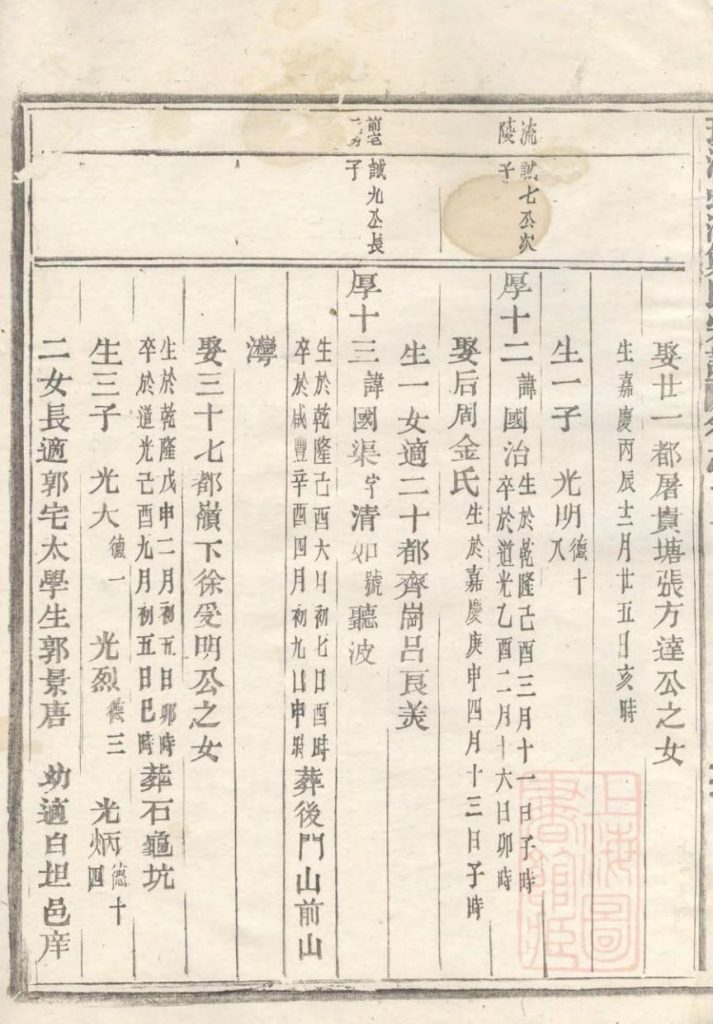 娶廿一都屠貴塘張方達公之女
生嘉慶丙辰十二月廿五日亥時
生一子　光明德十八
流陵　誠七公次子
厚十二　諱國治生於乾隆己酉三月十一日子時
卒於道光乙酉二月十六日卯時
娶后周金氏生於嘉慶庚申四月十三日子時
生一女適二十都齊崗呂良美
誠九公長子
厚十三　諱國渠字清如號聽波
生於乾隆己酉六月初七日酉時
卒於咸豐辛酉四月初九日申時葬後門山前山
灣
娶三十七都嶺下徐受明公之女
生於乾隆戊申二月初五日卯時
卒於道光己酉九月初五日巳時葬石龜坑
生三子　光大德一　光烈德三　光炳德十四
二女長適郭宅太學生郭景唐　幼適白坦邑庠
上海圖書館藏